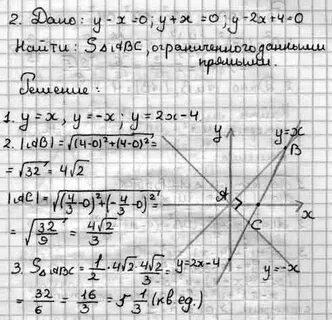 2. Дано: y-x=0; y+x=0; y-2x+4=0
Найти: S△ABC, ограниченного данными
прямыми.
Решение:
1. y=x, y=-x; y=2x-4
2. |AB|=√((4-0)²+(4-0)²)=
=√32=4√2
|AC|=√((4/3-0)²+(-4/3-0)²)=
=√(32/9)=4√2/3
3. S△ABC=1/2·4√2·4√2/3=
=32/6=16/3=5 1/3 (кв.ед.)
y
y=x
B
A
x
C
y=2x-4
y=-x